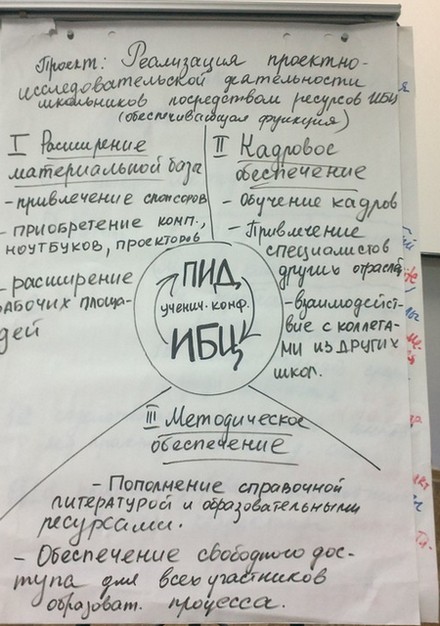 Проект: Реализация проектно-
исследовательской деятельности
школьников посредством ресурсов ИБЦ
(обеспечивающая функция)
I Расширение
материальной база
- привлечение спонсоров
- приобретение комп.,
ноутбуков, проекторов
- расширение
рабочих площа-
дей
II Кадровое
обеспечение
- Обучение кадров
- Привлечение
специалистов
других отраслей
- взаимодейст-
вие с коллега-
ми из других
школ.
ПИД
ученич. конф.
ИБЦ
III Методическое
обеспечение
- Пополнение справочной
литературой и образовательными
ресурсами.
- Обеспечение свободного дос-
тупа для всех участников
образоват. процесса.